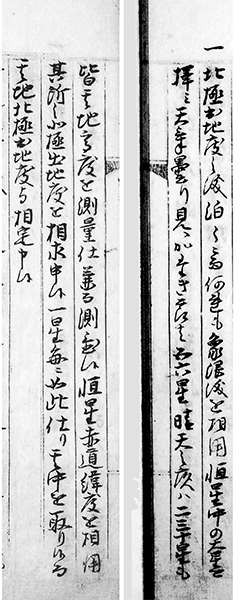 一 北極出地度之儀泊々ニ而何連も象限儀を相用恒星中の大星を
択ミ天気曇り見へかたき節は五六星晴天之夜ハ二三十星も
皆其地高度を測量仕兼而測置候恒星赤道緯度を相用
其所之北極出地度を相求申候一星毎ニ如此仕り其中を取り候而
其地北極出地度与相定申候